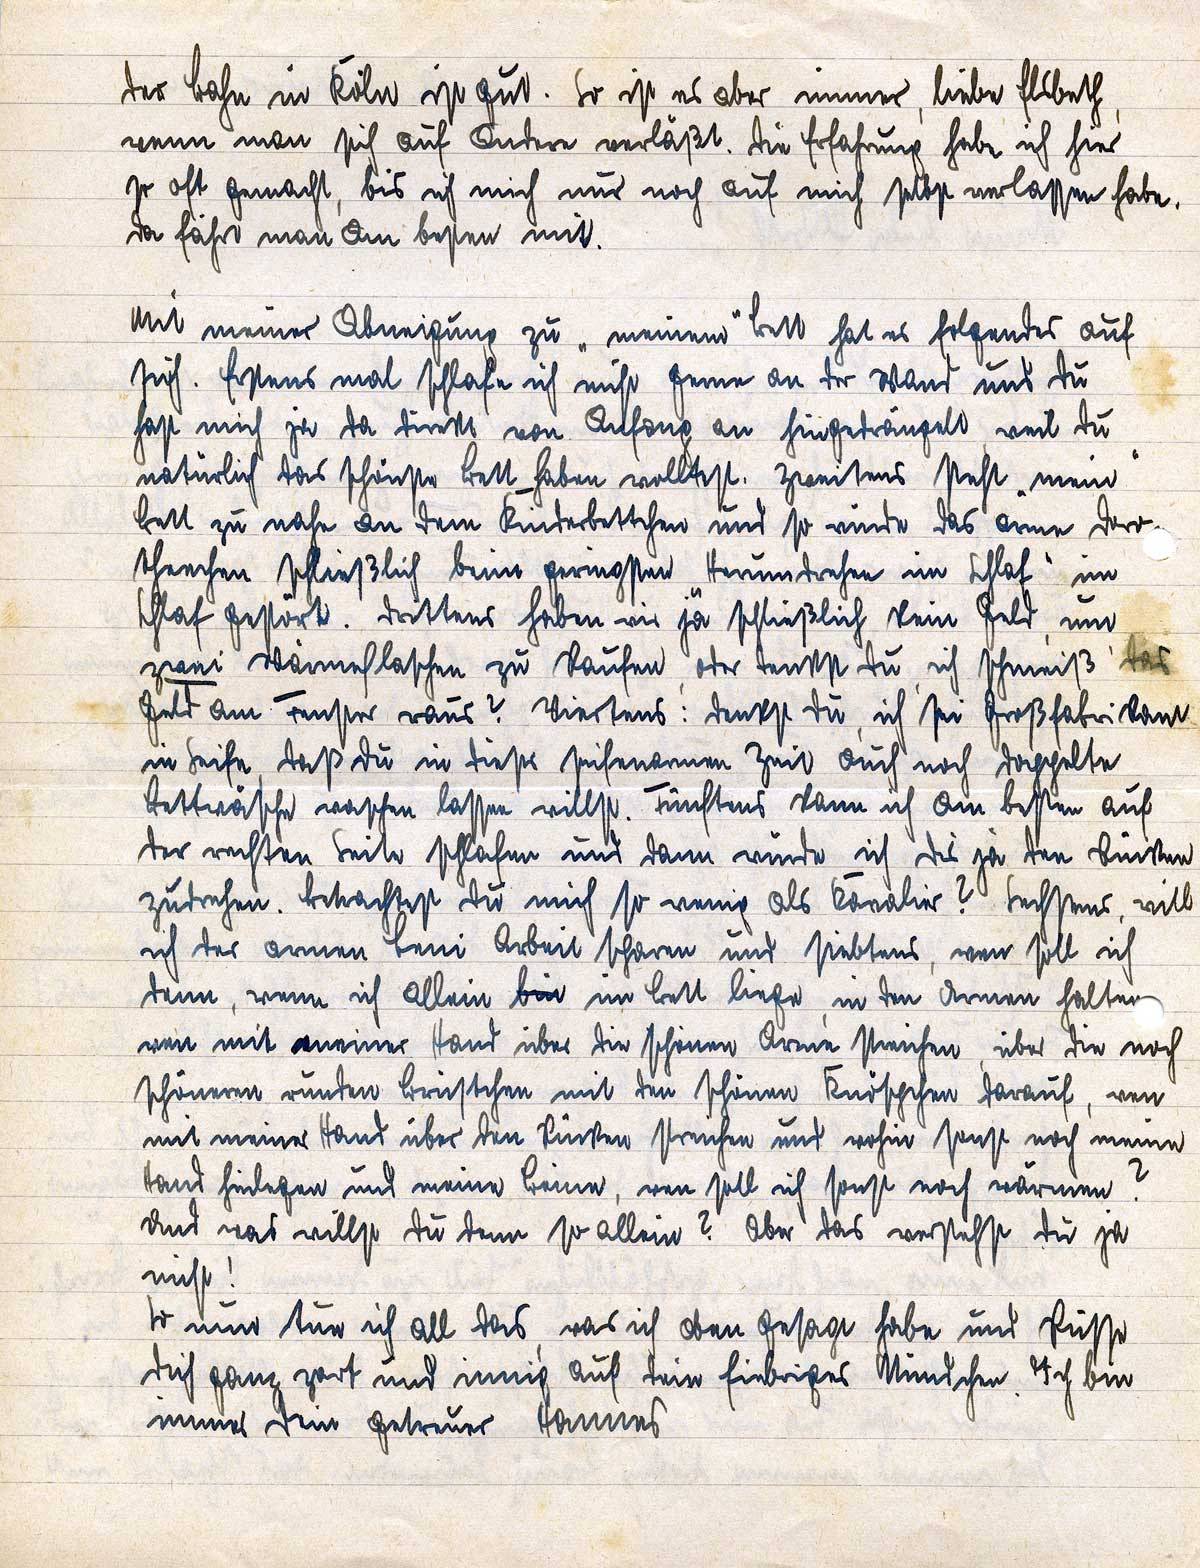 der Bahn in Köln ist gut. So ist es aber immer, liebe Elsbeth,
wenn man sich auf Andere verläßt. Die Erfahrung habe ich hier
so oft gemacht, bis ich mich nur noch auf mich selbst verlassen habe.
Da fährt man am besten mit.
Mit meiner Abneigung zu „meinem" Bett hat es folgendes auf
sich. Erstens mal schlafe ich nicht gerne an der Wand und Du
hast mich ja da direkt von Anfang an hingedrängelt, weil Du
natürlich das schönste Bett haben wolltest. Zweitens steht „mein"
Bett zu nahe an dem Kinderbettchen und so würde das arme Doro-
theechen schließlich beim geringsten „Herumdrehen im Schlaf" im
Schlaf gestört. Drittens haben wir ja schließlich kein Geld, um
zwei Wärmeflaschen zu kaufen, oder denkst Du, ich schmeiß das
Geld am Fenster raus? Viertens: denkst Du, ich sei Großfabrikant
in Seife, daß Du in dieser seifenarmen Zeit auch noch doppelte
Bettwäsche waschen lassen willst. Fünftens kann ich am besten auf
der rechten Seite schlafen und dann würde ich Dir ja den Rücken
zudrehen. Betrachtest Du mich so wenig als Kavalier? Sechstens, will
ich der armen Leni Arbeit sparen und siebtens, wen soll ich
denn, wenn ich allein bin im Bett liege, in den Armen halten
wen mit meiner Hand über die schönen Arme streichen, über die noch
schöneren runden Brüstchen mit den schönen Knöspchen darauf, wen
mit meiner Hand über den Rücken streichen und wohin sonst noch meine
Hand hinlegen und meine Beine, wen soll ich sonst noch wärmen?
Und was willst Du denn so allein? Aber das verstehst Du ja
nicht!
So nun tue ich all das, was ich oben gesagt habe und küsse
Dich ganz zart und innig auf Dein fiebriges Mündchen. Ich bin
immer Dein getreuer Hannes